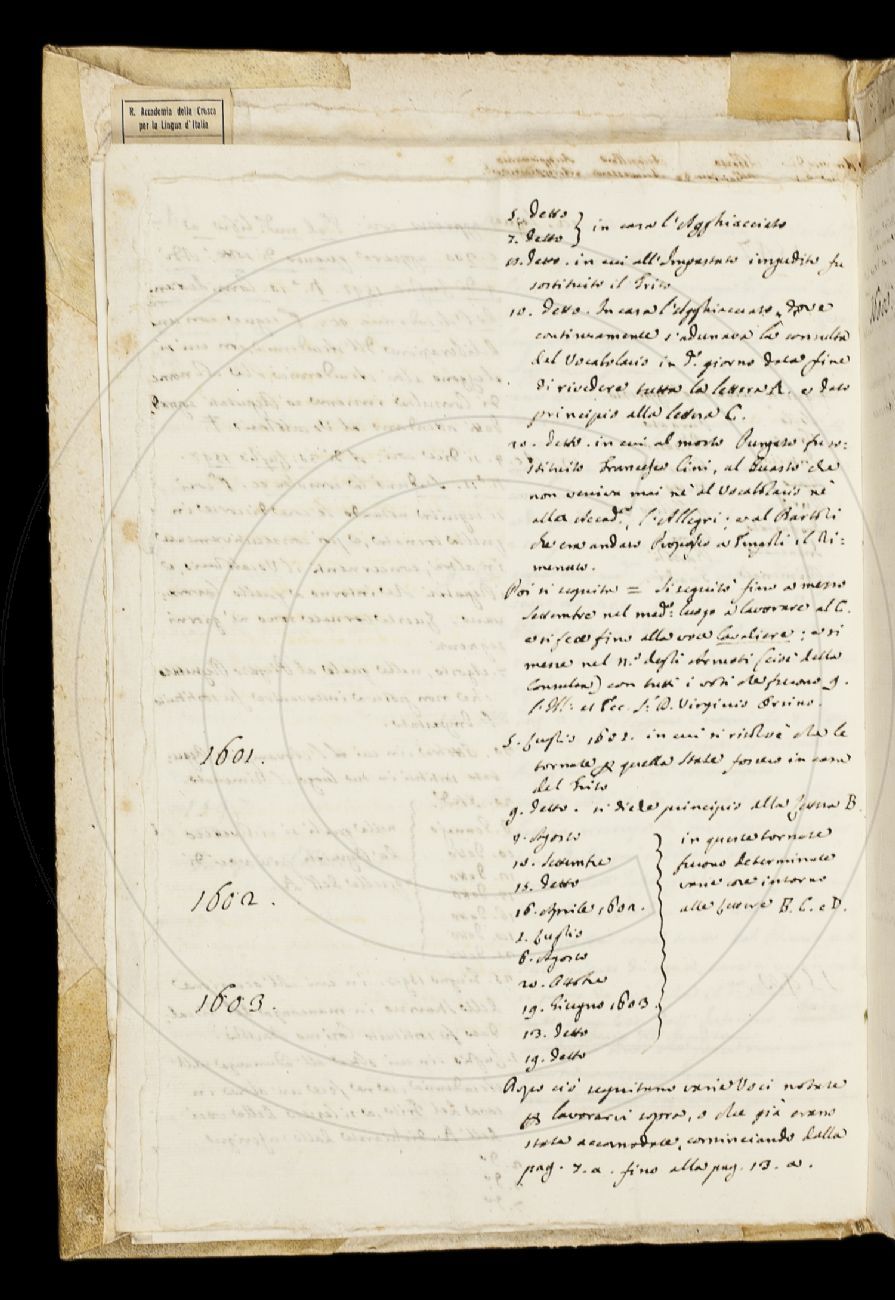 R. Accademia della Crusca
per la Lingua d'Italia
5. detto
7. detto } in casa l'Agghiacciato
detto. in cui all'Impastato impedito fu
sostituito il Trito
10. detto. In casa l'Agghiacciato, dove
continuamente s'adunava la consulta
del Vocabolario in d.º giorno data fine
di rivedere tutta la lettera A. e dato
principio alla lettera C.
20. detto. in cui al morto Purgato fu so:
stituito Francesco Cini, al Guasto che
non veniva mai nè al Vocabolario nè
alla Accad.ª, l'Allegri; e al Bartoli
che era andato a il Ri:
menato.
Poi si seguita = Si seguitò fino a mezzo
Settembre nel med.º luogo a lavorare al C.
e si fece fino alla voce Cavaliere; e si
messe nel n.º degli Arrosti (cioè della
Consulta) con tutti i voti che furono 9.
l'Ill.º et Ecc. S.r D. Virginio Orsino.
1601.
5. Luglio 1601. in cui si risolvè che le
tornate p quella state fossero in casa
del Trito
9. detto. si diede principio alla lettera B.
9. Agosto } in queste tornate
10. Settembre furono determinate
15. detto varie cose intorno
1602.
16. Aprile 1602. alle lettere B. C. e D.
2. Luglio
6. Agosto
20. Ottobre
1603.
19. Giugno 1603.
13. detto
19. detto
Dopo ciò seguitano varie Voci notate
p lavorarci sopra, o che già erano
state accomodate, cominciando dalla
pag. 7. a. fino alla pag. 13. a.